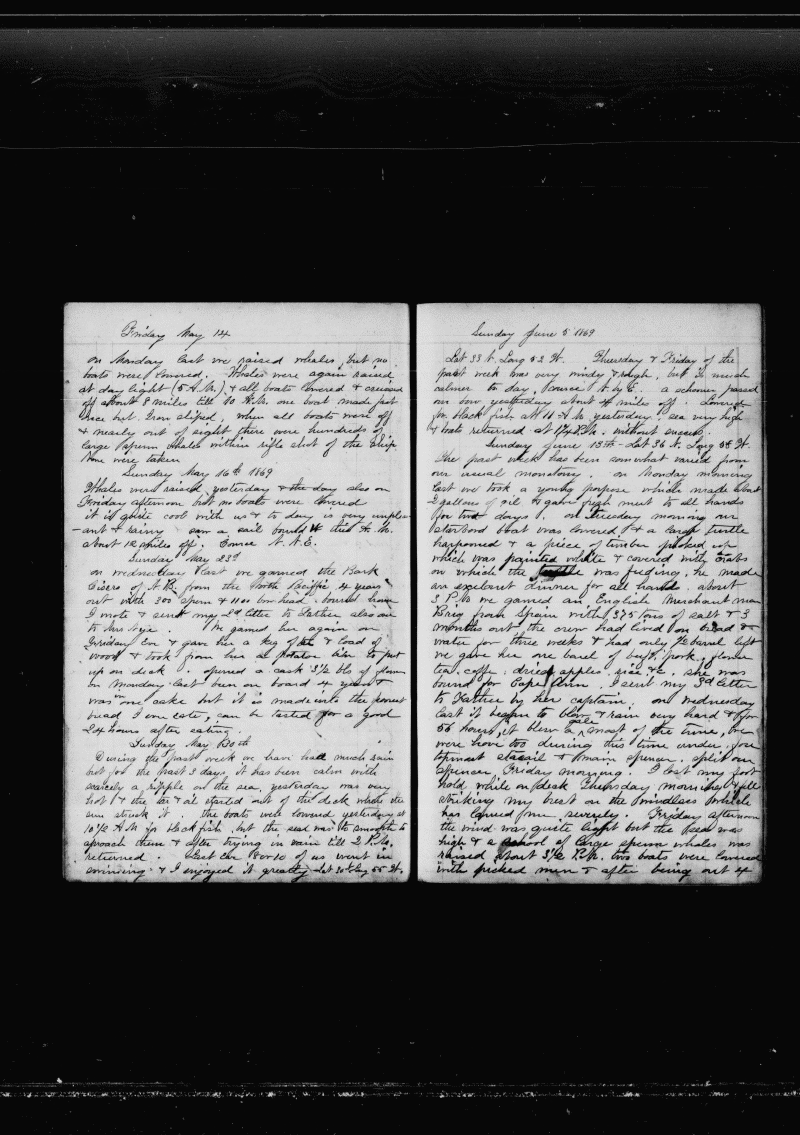 Friday May 14
on Monday last we raised whales, but no
boats were lowered. Whales were again raised
at day light (5 A.M.) & all boats lowered & cruised
off about 8 miles till 10 A.M. one boat made fast
twice but Iron sliped. when all boats were off
& nearly out of sight there were hundreds of
large sperm whales within rifle shot of the ship
None were taken
Sunday May 16th 1869
Whales were raised yesterday & the day also on
Friday afternoon but no boats were lowered
it is quite cool with us & to day is very unplea-
ant & rainy. saw a sail bound W this A.M.
about 12 miles off. Course N.N.E.
Sunday May 23d
on wednesday last we gamed the Bark
Cicero of N.B. from the North Pacific 4 years
out with 300 sperm & 1100 bow head. bound home
I wrote & sent my 2d letter to Father also one
to Mrs Nye. We gamed her again on
Friday Eve & gave her a keg of & load of
wood & took from her a Potatoe bin to put
up on deck. opened a cask 3 1/2 bls of flour
on Monday last been on board 4 years &
was in one cake but it is made into the
bread I ever ate, can be tasted for a good
24 hours after eating.
Sunday May 30th
During the past week we have had much rain
but for the past 3 days it has been calm with
scarcely a ripple on the sea, yesterday was very
hot & the tar & oil started out of the deck where the
sun struck it. the boats were lowered yesterday at
10 1/2 A.M. for black fish, but the sea was to smooth to
aproach them & after trying in vain till 2 P.M.
returned. Last Eve 8 or 10 of us went in
swiming & I enjoyed it greatly Lat 30 Long 55 W.
Sunday June 5 1869
Lat 33 N. Long 52 W. Thursday & Friday of the
past week was very windy & rough, but is much
calmer to day, Cource N by E. a schooner passed
our bow yesterday about 4 miles off. Lowered
for black fish at 11 A.M. yesterday. sea very high
& boats returned at 1 1/2 P.M. without success.
Sunday June 13th - Lat 36 N. Long 55 W.
The past week has been somwhat varied from
our usual monotony. on Monday morning
last we took a young porpose which made about
2 gallons of oil & gave fresh meat to all hands
for two days. on Tuesday morning our
starbord boat was lowered & a large turtle
harpooned & a piece of timber picked up
which was painted white & covered with Crabs
on which the was feeding, he made
an excelant dinner for all hands. about
3 P.M. we gamed an English Merchant man
Brig from Spain with 375 tons of salt & 3
months out the crew had lived on bread &
water for three weeks & had only 1/2 barrel left
we gave her one barel of beef, pork, flour
tea. coffe. dried apples. rice &c. she was
bound for Cape Ann. I sent my 3d letter
to Father by her captain. on wednesday
last it began to blow & rain very hard & for
56 hours, it blew a gale most of the time, we
were hove too during this time under fore
topmast staesail & main spencer. split our
spencer Friday morning. I lost my foot
hold while on deck Thursday morning & fell
striking my brest on the windlass which
has lamed me severely. Friday afternoon
the wind was quite light but the sea was
high & a school of large sperm whales was
raised about 3 1/2 P.M. two boats were lowered
with picked men & after being out 4